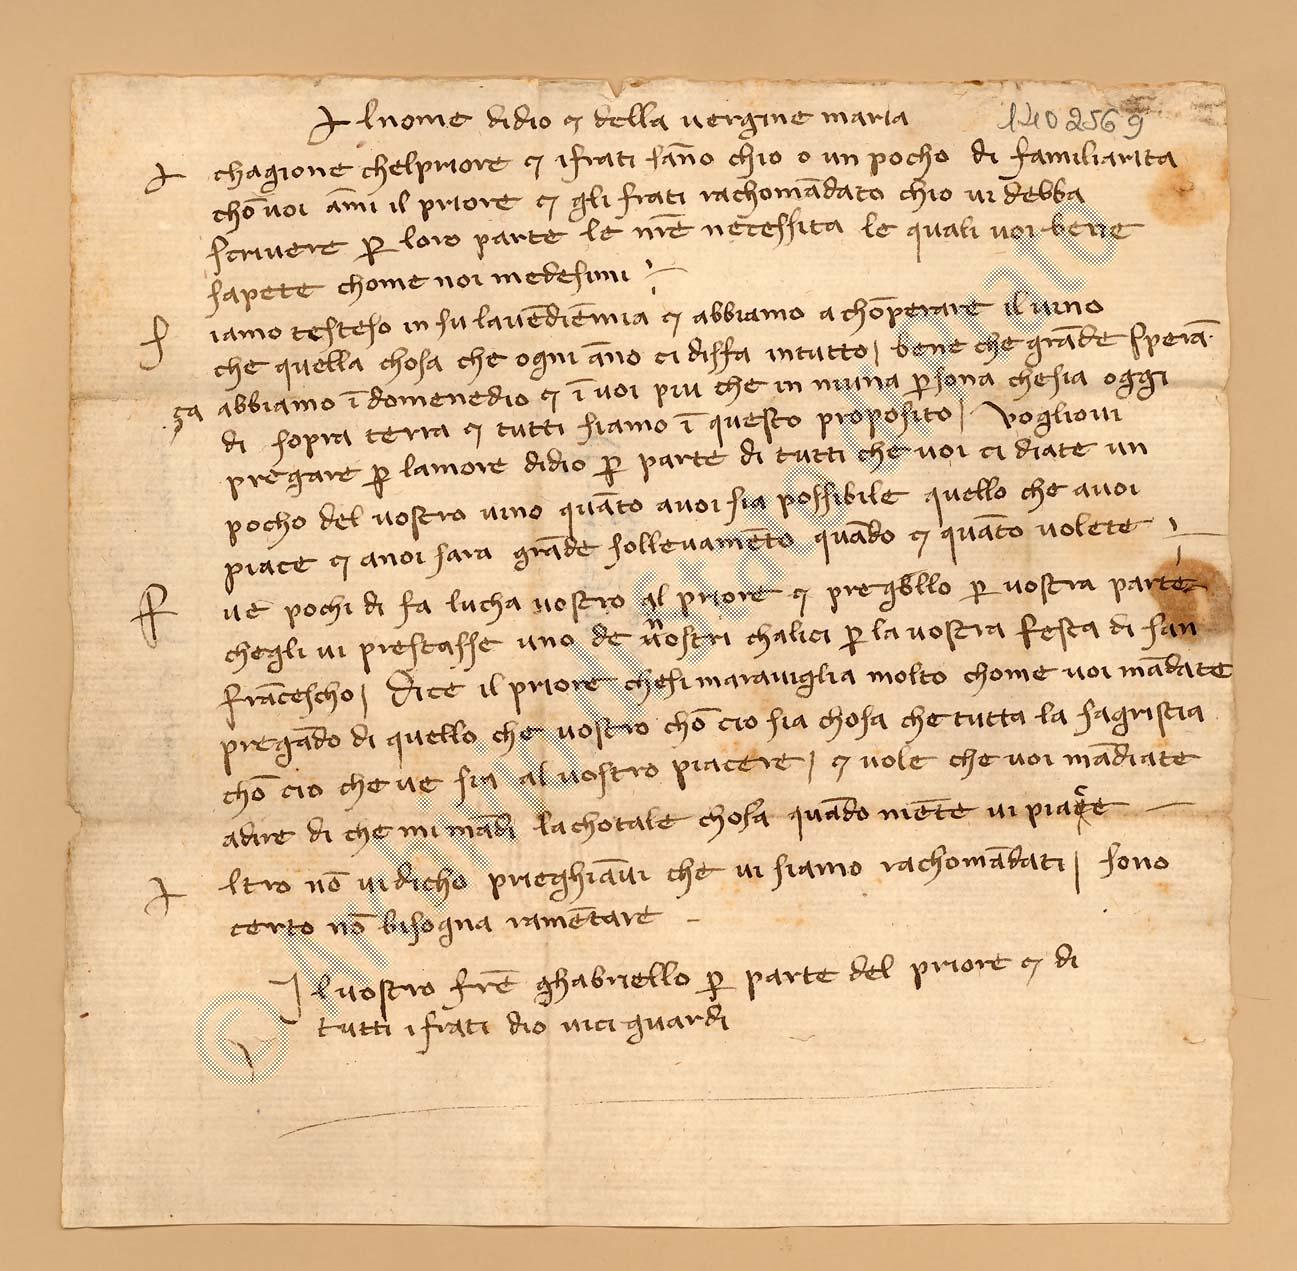 Al nome didio ⁊ della vergine maria
1402569
A chagione chelpriore ⁊ ifrati sãno chio o un pocho di familiarita
chõ voi ãmi il priore ⁊ gli frati rachomãdato chio vi debba
scrivere p̱ loro parte le nr̃e necessita le quali voi bene
sapete chome noi medesimi
S iamo testeso in su lavẽdẽmia ⁊ abbiamo a chõperare il vino
che quella chosa che ogni ãno ci disfa intutto / bene che grãde sperã
ça abbiamo ĩ domenedio ⁊ ĩ voi piu che in niuna p̱sona chesia oggi
di sopra terra ⁊ tutti siamo ĩ questo proposito / vogliovi
pregare p̱ lamore didio p̱ parte di tutti che voi ci diate un
pocho del vostro vino quãto avoi sia possibile quello che avoi
piace ⁊ anoi sara grãde sollevamẽto quãdo ⁊ quãto volete
vẽ pochi di fa lucha vostro al priore ⁊ pregollo p̱ vostra parte
chegli vi prestasse uno de nostri chalici p̱ la vostra festa di san
frãcescho / Dice il priore chesi maraviglia molto chome voi mãdate
pregãdo di quello che vostro chõ cio sia chosa che tutta la sagristia
chõ cio che ve sia al vostro piacere / ⁊ vole che voi mãdiate
adire di che mi mãdi lachotale chosa quãdo niẽte vi piace
A ltro nõ vidicho prieghiãvi che vi siamo rachomãdati / sono
certo nõ bisogna ramẽtare
Il vostro fr̃e ghabriello p̱ parte del priore ⁊ di
tutti ifrati dio vici guardi
© Archivio di Stato di Prato